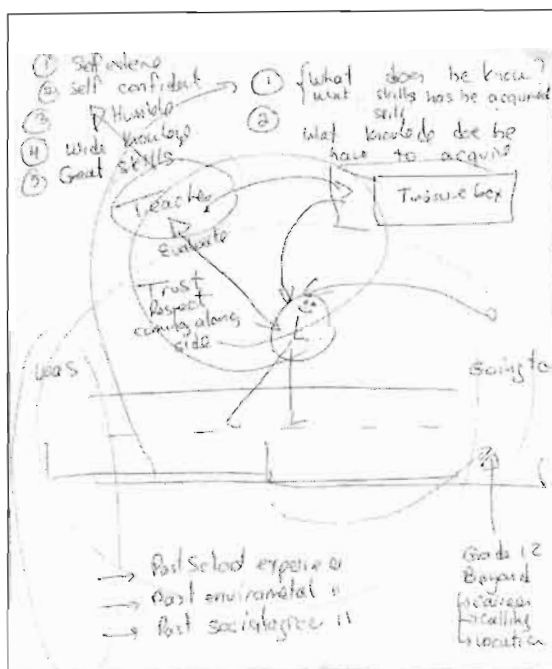 ① Self esteem
② self confident
③ Humble
④ wide knowledge
⑤ Great skills
① what does he know?
what skills has he acquired
② skill
what knowledge does he
have to acquire
Teacher
Treasure box
Evaluate
Trust
Respect
coming along
side
L
was
Going to
?
→ Past School experience
→ Past enviromental "
→ Past sociological "
Grade 12
Beyond
↳ career
↳ calling
↳ vocation